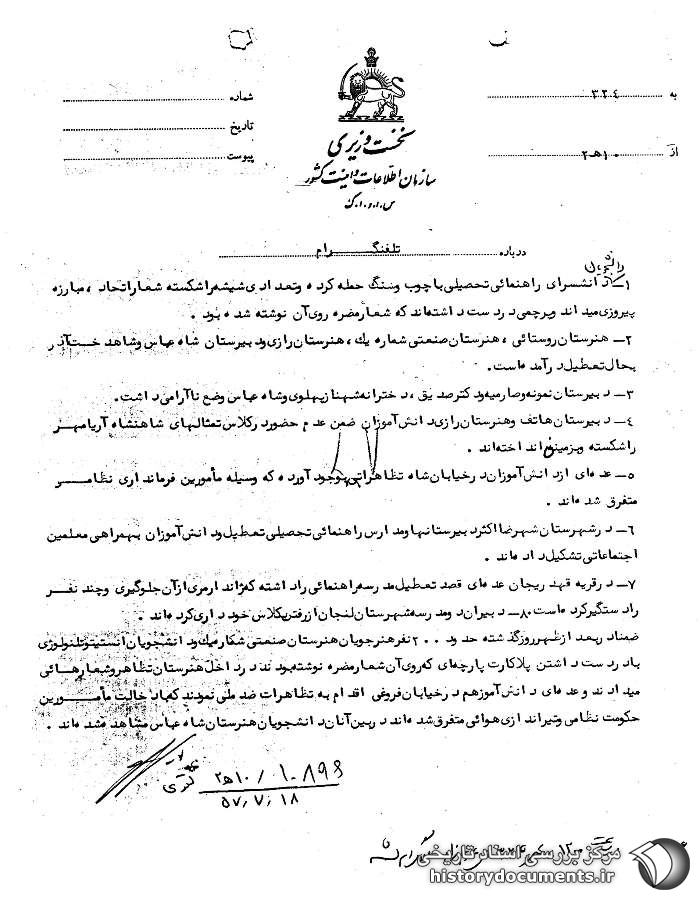 به ۳۲۴
شماره
تاریخ
از ۱۰هـ۲
پیوست
نخست وزیری
سازمان اطلاعات و امنیت کشور
س.ا.و.ا.ک
درباره تلفنگرام
۱ـ دانشسرای راهنمائی تحصیلی با چوب و سنگ حمله کرده و تعدادی شیشه را شکسته شعار اتحاد ، مبارزه
پیروزی میداند و پرچمی در دست داشته‌اند که شعار مضره روی آن نوشته شده بود .
۲ـ هنرستان روستائی ، هنرستان صنعتی شماره یك ، هنرستان رازی و دبیرستان شاه عباس و شاهدخت آذر
بحال تعطیل درآمده است .
۳ـ دبیرستان نمونه و صارمیه و دکتر صدیق ، دخترانه شهناز پهلوی و شاه عباس وضع ناآرامی داشت .
۴ـ دبیرستان هاتف و هنرستان رازی دانش‌آموزان ضمن عدم حضور در کلاس تمثالهای شاهنشاه آریامهر
را شکسته و بزمین انداخته‌اند .
۵ـ عده‌ای از دانش‌آموزان در خیابان شاه تظاهراتی بوجود آورده که وسیله مأمورین فرمانداری نظامی
متفرق شده‌اند .
۶ـ در شهرستان شهرضا اکثر دبیرستانها و مدارس راهنمائی تحصیلی تعطیل و دانش‌آموزان بهمراهی معلمین
اجتماعاتی تشکیل داده‌اند .
۷ـ در قریه قهدریجان عده‌ای قصد تعطیل مدرسه راهنمائی را داشته که ژاندارمری از آن جلوگیری و چند نفر
را دستگیر کرده است ۸۰ـ دبیران دو مدرسه شهرستان لنجان از رفتن بکلاس خودداری کرده‌اند .
ضمناً در بعد از ظهر روز گذشته حدود ۲۰۰ نفر هنرجویان هنرستان صنعتی شماره یك و دانشجویان انستیتو تکنولوژی
با در دست داشتن پلاکارت پارچه‌ای که روی آن شعار مضره نوشته بودند در داخل هنرستان تظاهر و شعارهائی
میدادند و عده‌ای دانش‌آموز هم در خیابان فروغی اقدام به تظاهرات ضد ملی نمودند که با دخالت مأمورین
حکومت نظامی و تیراندازی هوائی متفرق شده‌اند در بین آنان دانشجویان هنرستان شاه عباس مشاهده شده‌اند .
۱۰۸۹۶ / ۱۰هـ۲
۵۷٫۷٫۱۸
مرکز بررسی اسناد تاریخی
historydocuments.ir